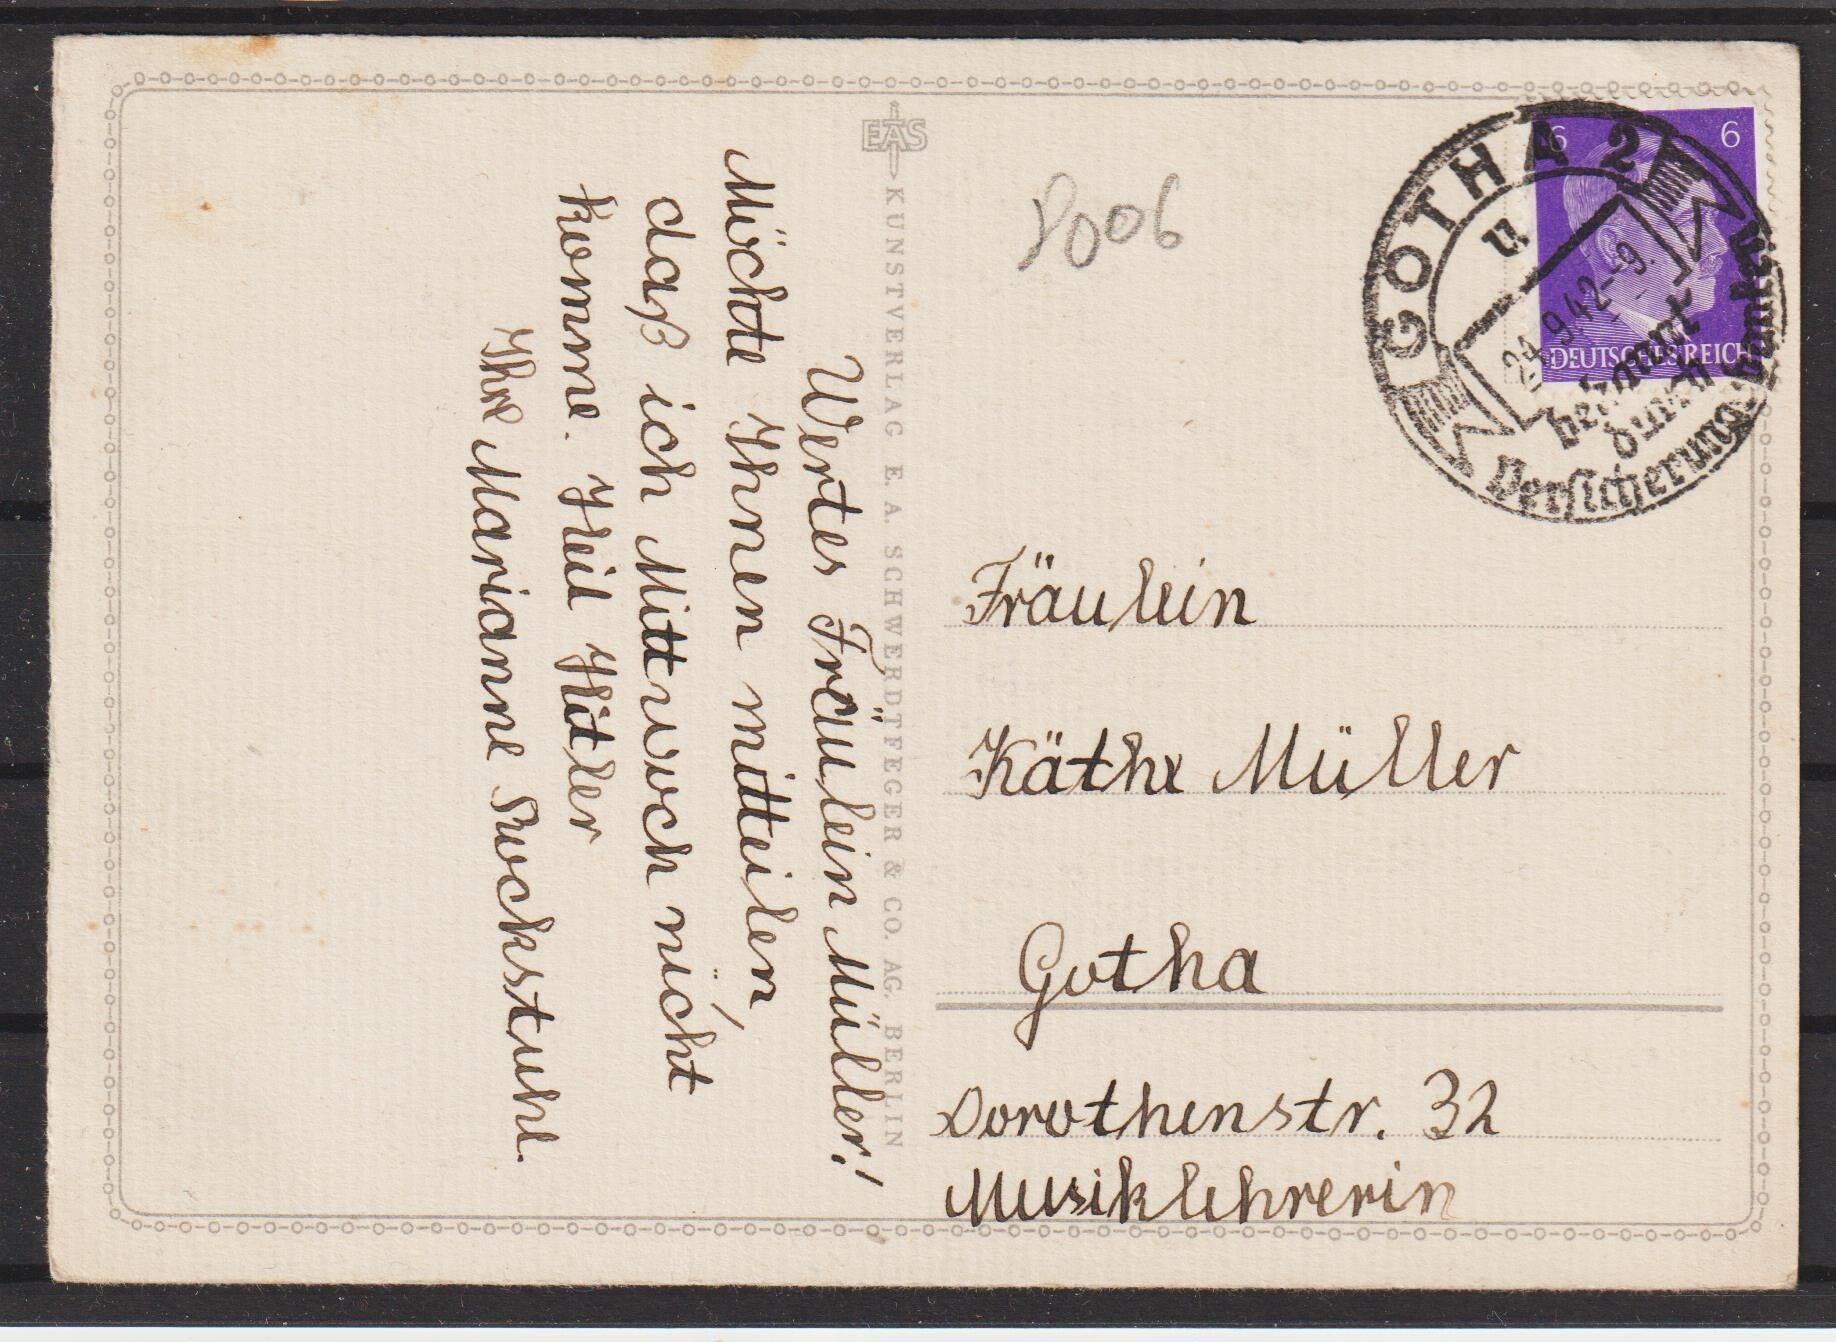 Wertes Fräulein Müller!
Möchte Ihnen mitteilen,
daß ich Mittwoch nicht
komme. Heil Hitler
Ihre Marianne Suckstuhl.
EAS
KUNSTVERLAG E. A. SCHWERDTFEGER & CO. AG. BERLIN
8006
6 6
DEUTSCHES REICH
GOTHA 2
u
9.42-9.
bekannt
durch
Versicherung
Fräulein
Käthe Müller
Gotha
Dorothenstr. 32
Musiklehrerin